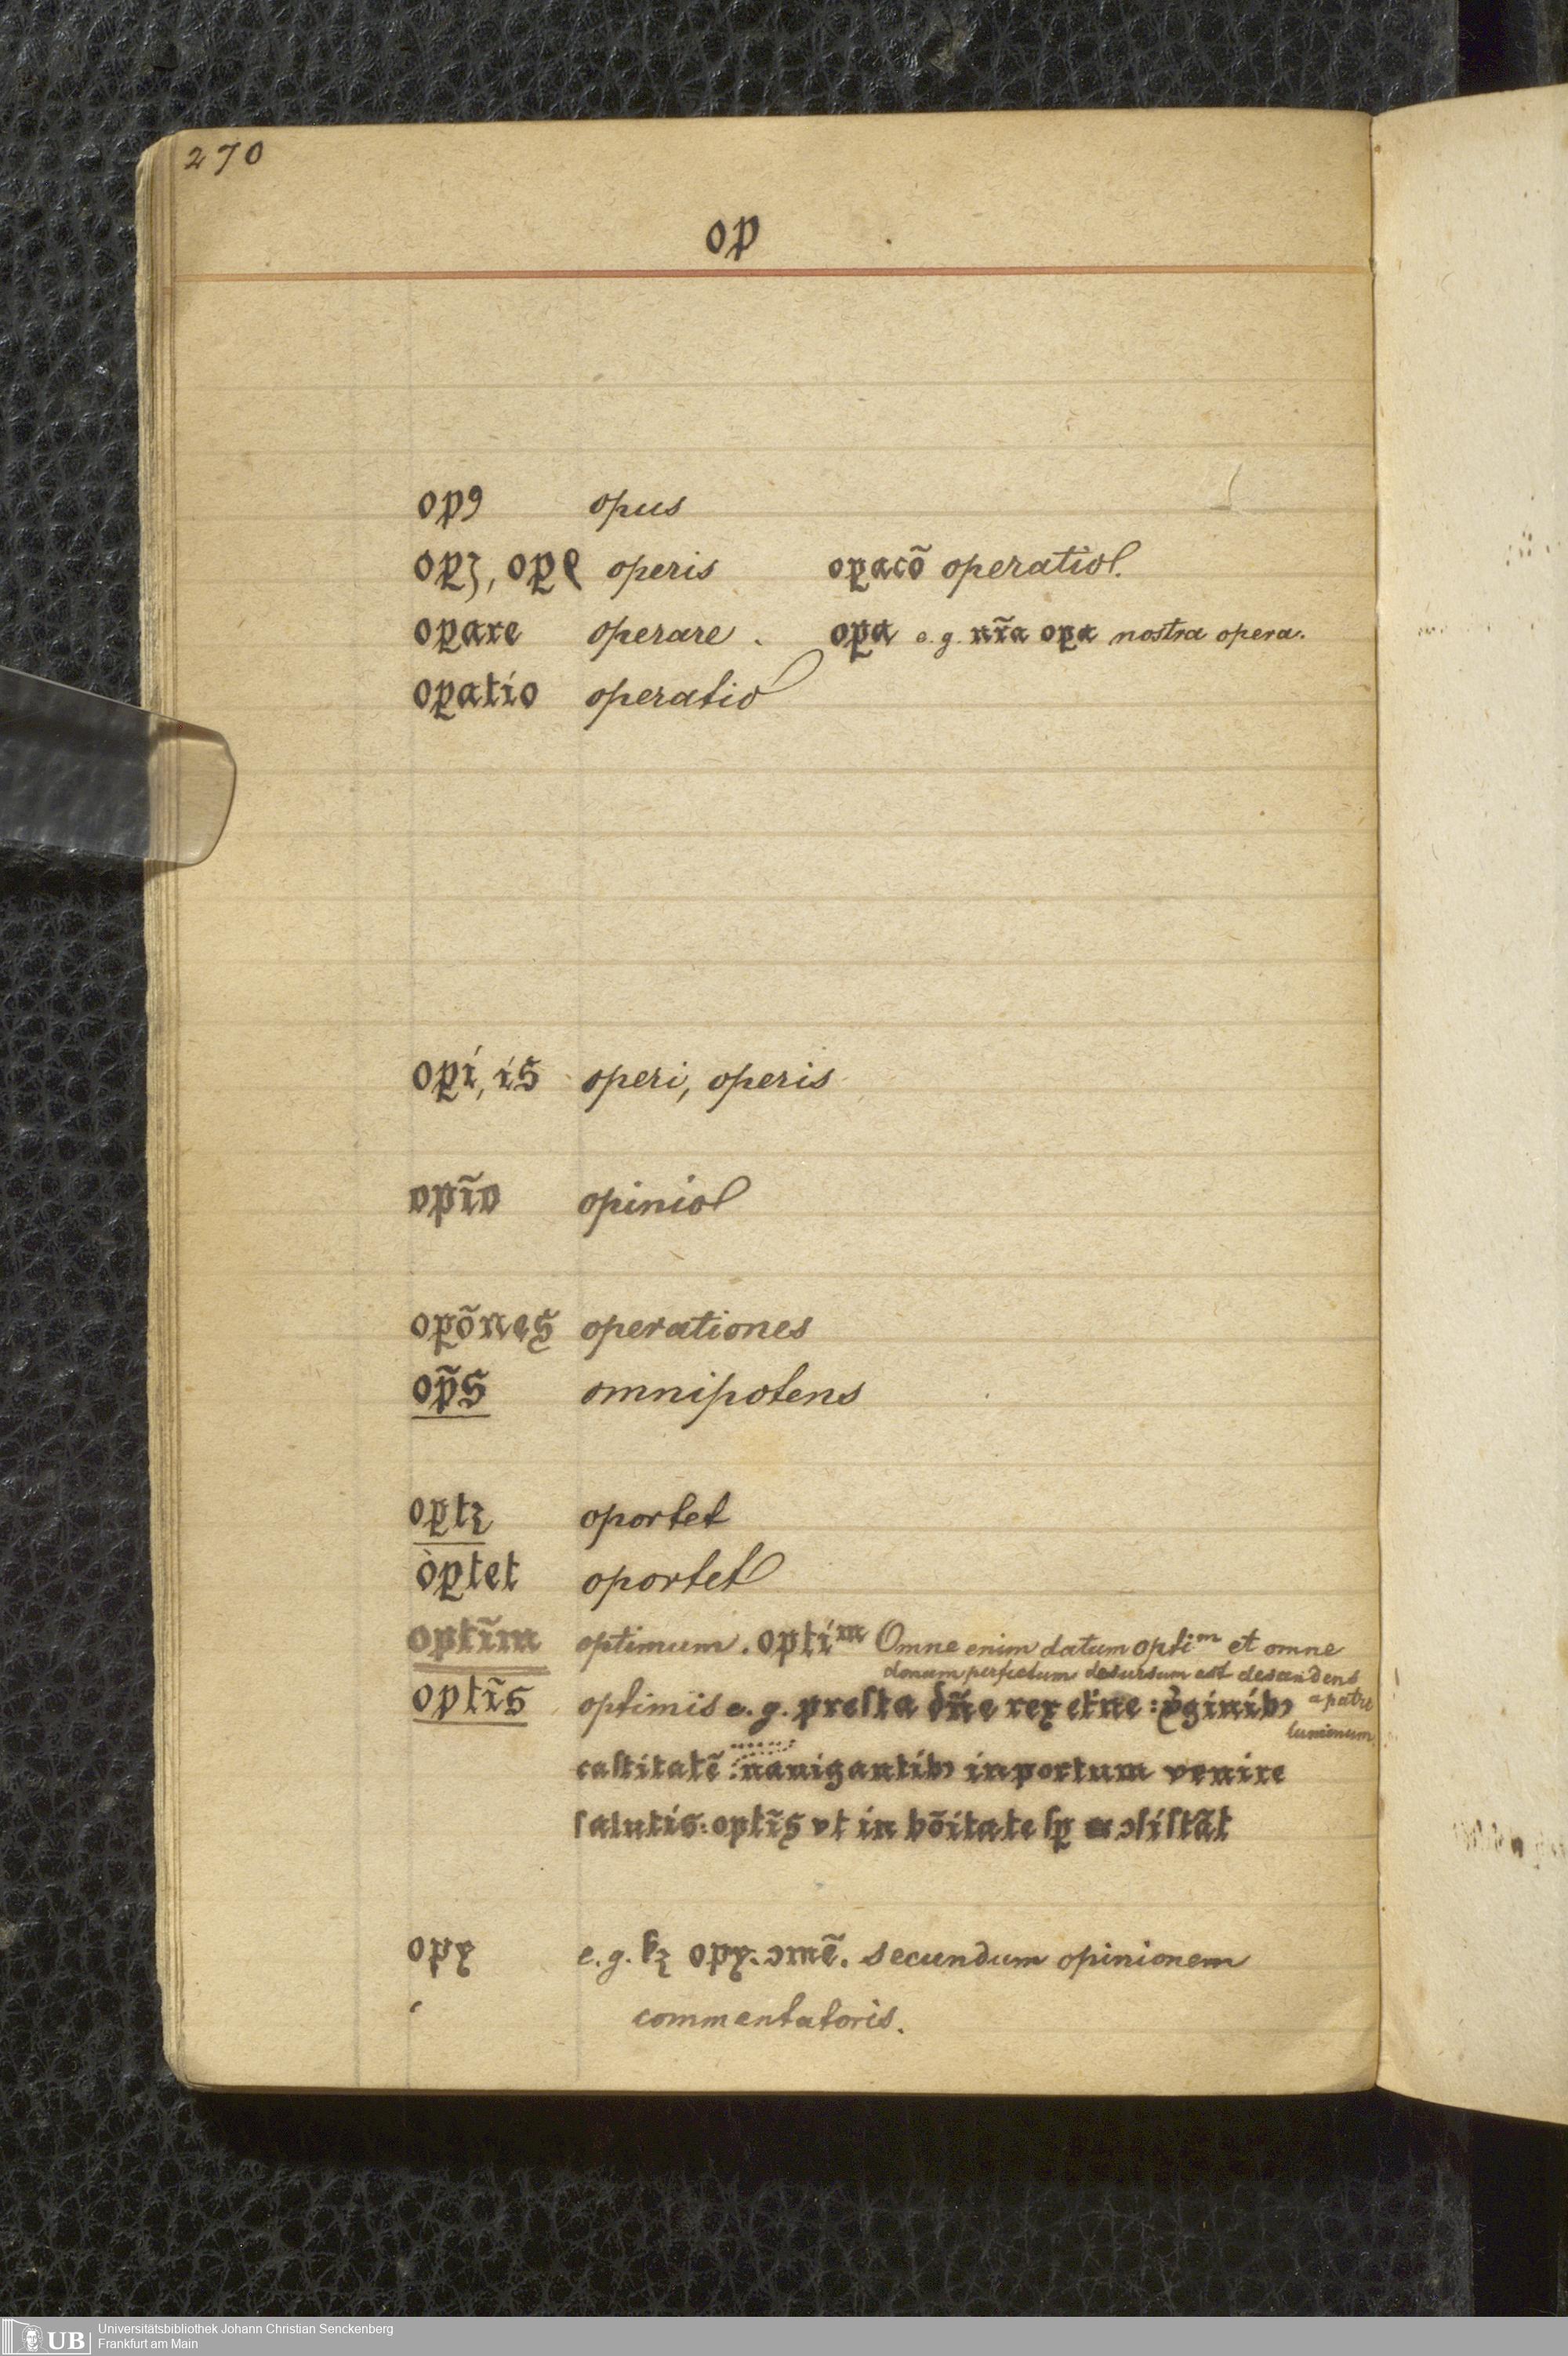 270
op
opꝰ opus
oꝑʒ, oꝑꝭ operis oꝑacõ operatio.
oꝑare operare . oꝑa e.g. nr̃a oꝑa nostra opera.
oꝑatio operatio
oꝑi, is operi, operis
opĩo opinio
oꝑõnes operationes
op̃s omnipotens
oꝑtꝫ oportet
oꝑtet oportet
optĩm optimum . optiᵐ Omne enim datum optiᵐ et omne
donum perfectum desursum est descendens
a patre
luminum
optĩs optimis e.g. preſta dñe rex et̃ne : v̾ginibꝫ
caſtitatẽ : nauigantibꝫ in portum venire
ſalutis : optĩs vt in bõitate ſꝑ ꝯſiſtãt
opꝫ e.g. ꝫ opꝫ. ꝯmẽ. secundum opinionem
commentatoris.
Universitätsbibliothek Johann Christian Senckenberg
Frankfurt am Main
UB